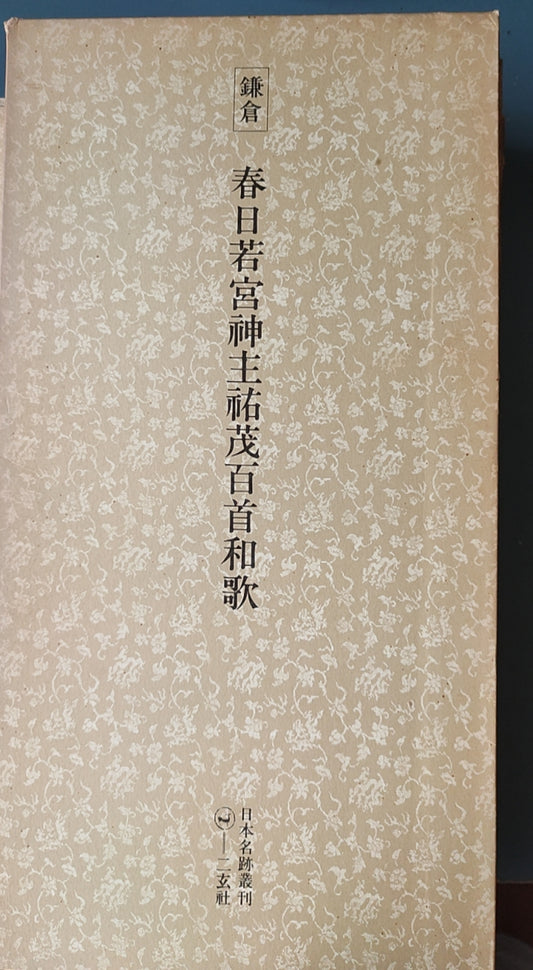 鎌倉
春日若宮神主祐茂百首和歌
日本名跡叢刊
二玄社